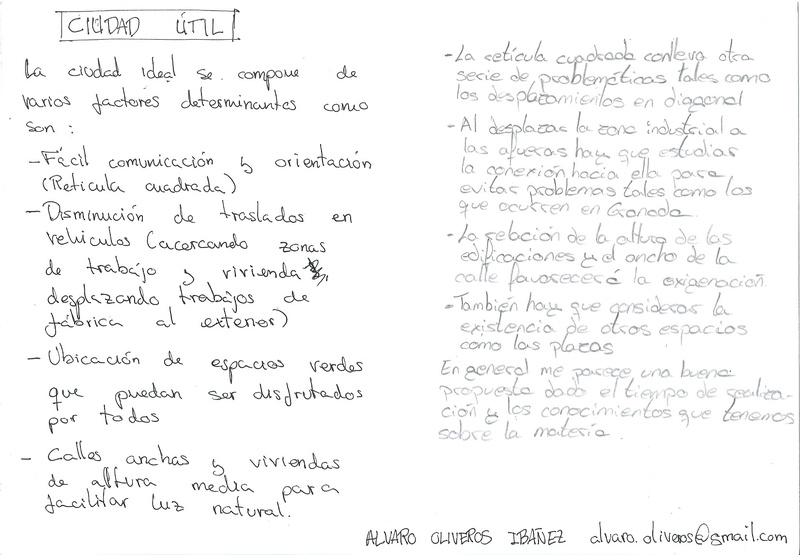 CIUDAD ÚTIL
La ciudad ideal se compone de
varios factores determinantes como
son :
- Fácil comunicación y orientación
(Retícula cuadrada)
- Disminución de traslados en
vehículos (acercando zonas
de trabajo y vivienda y
desplazando trabajos de
fábrica al exterior)
- Ubicación de espacios verdes
que puedan ser disfrutados
por todos
- Calles anchas y viviendas
de altura media para
facilitar luz natural.
- La retícula cuadrada conlleva otra
serie de problemáticas tales como
los desplazamientos en diagonal
- Al desplazar la zona industrial a
las afueras hay que estudiar
la conexión hacia ella para
evitar problemas tales como los
que ocurren en Granada.
- La relación de la altura de las
edificaciones y el ancho de la
calle favorecerá la oxigenación.
- También hay que considerar la
existencia de otros espacios
como las plazas
En general me parece una buena
propuesta dado el tiempo de realiza-
ción y los conocimientos que tenemos
sobre la materia.
ALVARO OLIVEROS IBAÑEZ alvaro.oliveros@gmail.com